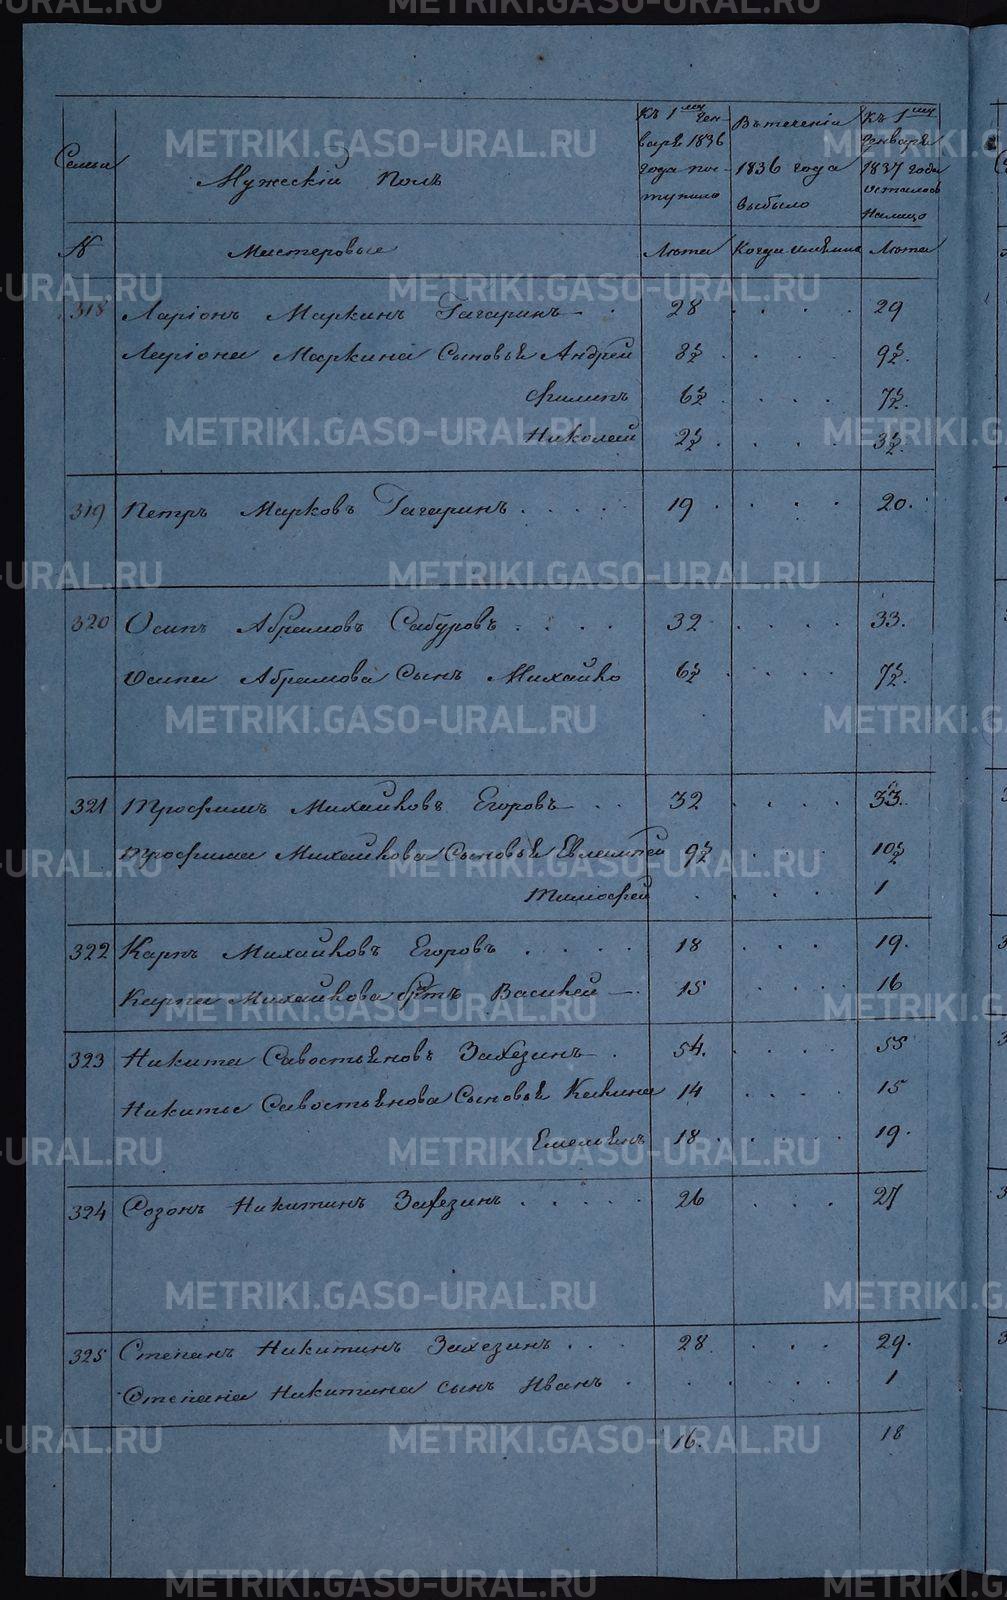 Семьи
Мужескій Полъ
Къ 1му Генваре 1836 года поступило
Въ теченіи 1836 года выбыло
Къ 1му Генваре 1837 года осталось налицо
№ Мастеровые Лѣта Когда именно Лѣта
318 Ларіонъ Маркинъ Гагаринъ 28 29
Ларіона Маркина Сыновья Андрей 8½ 9½
Филипъ 6½ 7½
Николай 2½ 3½
319 Петръ Марковъ Гагаринъ 19 20.
320 Осипъ Абрамовъ Сабуровъ 32 33.
Осипа Абрамова Сынъ Михайло 6½ 7½
321 Трофимъ Михайловъ Егоровъ 32 33.
Трофима Михайлова Сыновья Евлампей 9½ 10½
Тимофей 1
322 Карпъ Михайловъ Егоровъ 18 19.
Карпа Михайлова братъ Василей 15 16
323 Никита Савостьяновъ Захезинъ 54. 55
Никиты Савостьянова Сыновья 14 15
Емельянъ 18 19.
324 Созонъ Никитинъ Захезинъ 26 27
325 Степанъ Никитинъ Захезинъ 28 29.
Степана Никитина сынъ Иванъ 1
16. 18
METRIKI.GASO-URAL.RU